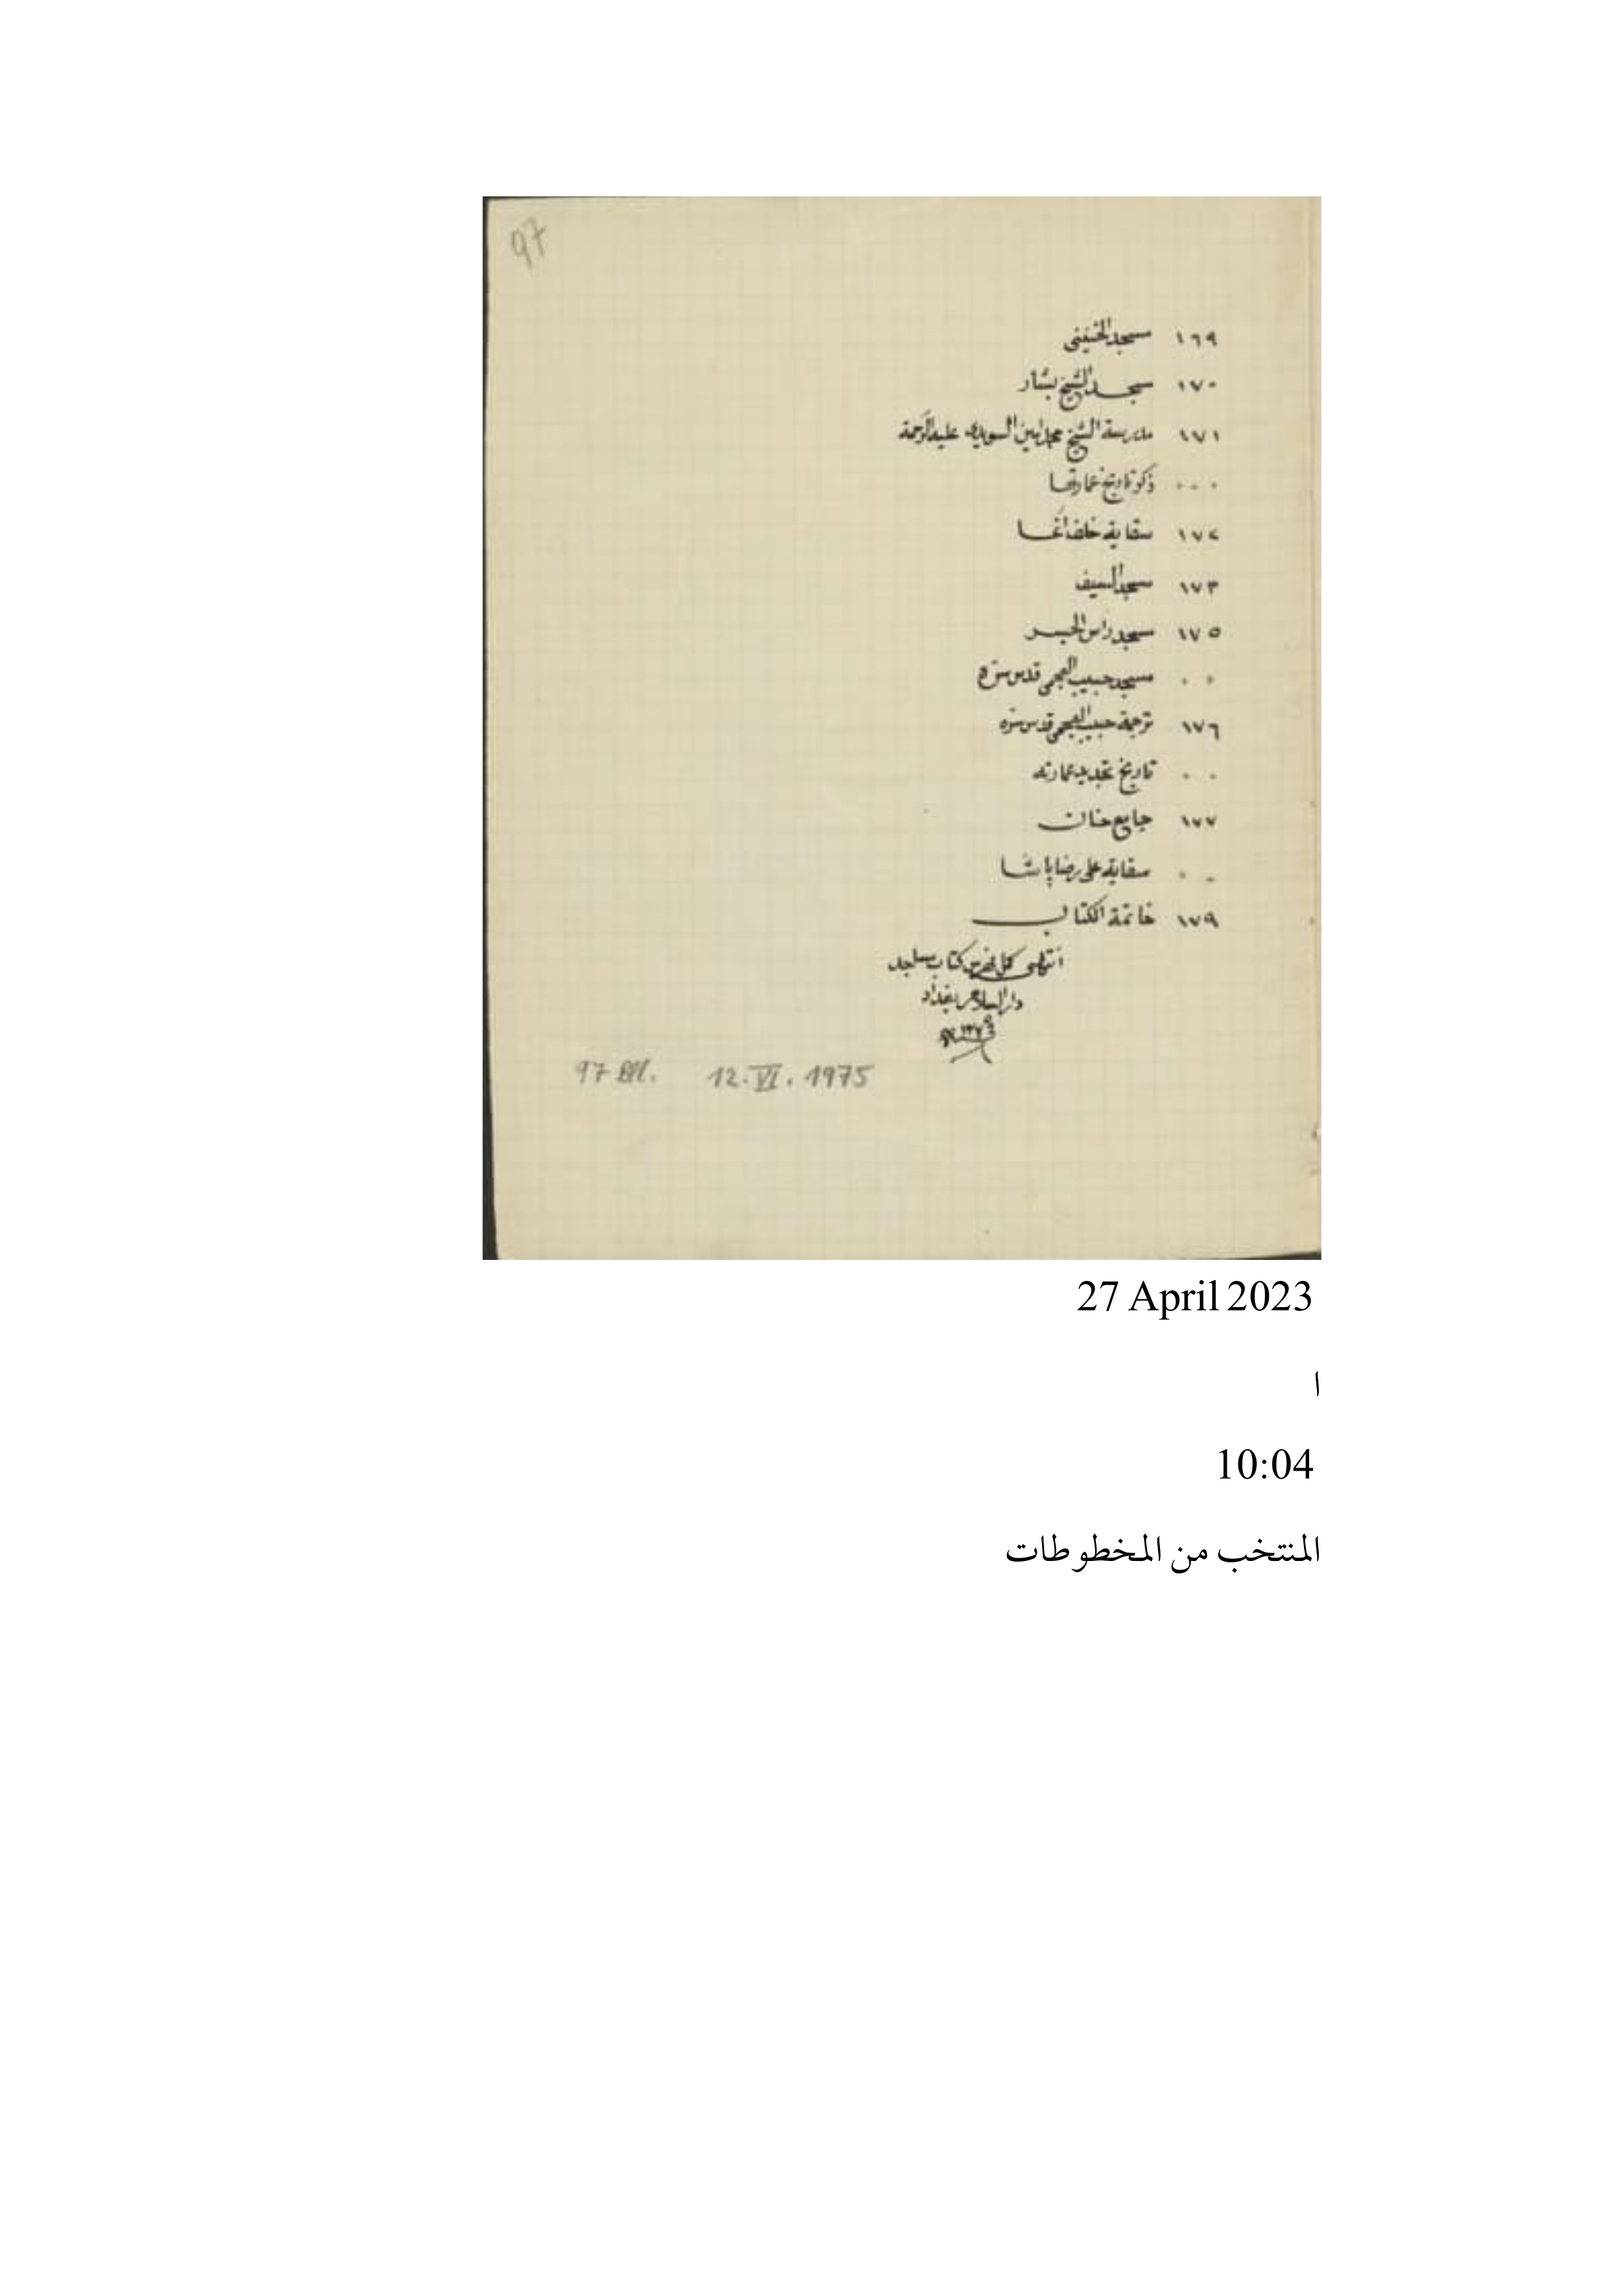 97
١٦٩ مسجد الخنيني
١٧٠ مسجد الشيخ بشار
١٧١ مدرسة الشيخ محمد امين السويدي عليه الرحمة
... ذكر تاريخ عمارتها
١٧٢ سقاية خلف اغا
١٧٣ مسجد السيف
١٧٥ مسجد راس الجسر
.. مسجد حبيب العجمي قدس سره
١٧٦ ترجمة حبيب العجمي قدس سره
.. تاريخ تجديد عمارته
١٧٧ جامع حنان
.. سقاية علي رضا پاشا
١٧٩ خاتمة الكتاب
انتهى كل فهرس كتاب مساجد
دار السلام بغداد
97 Bll. 12.VI.1975
27 April 2023
ا
10:04
المنتخب من المخطوطات